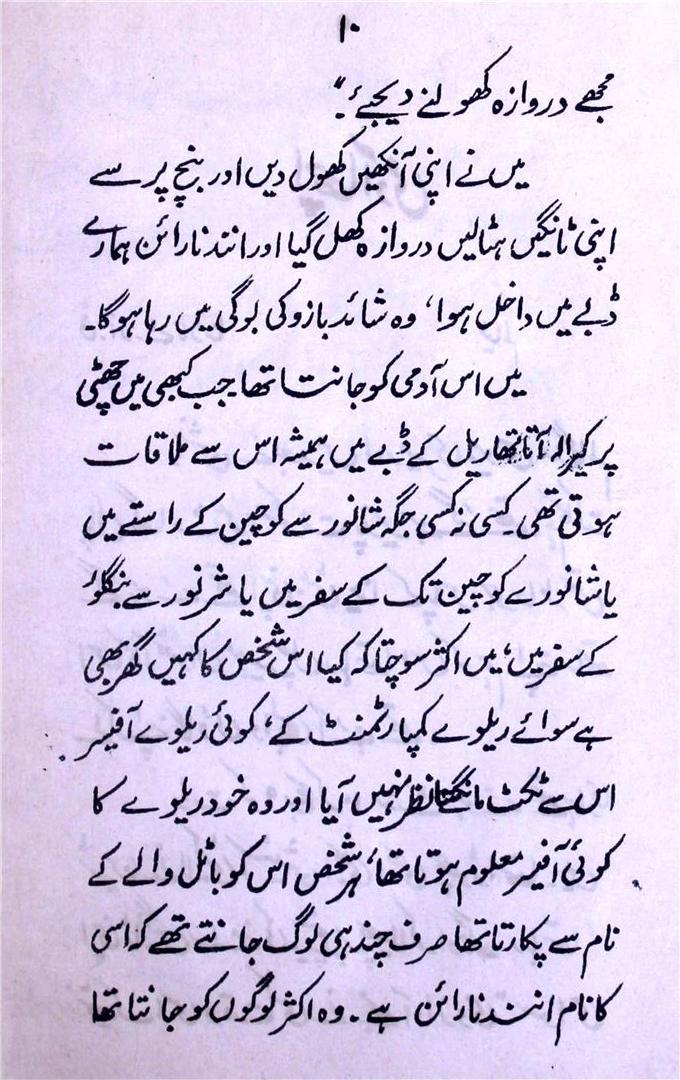 ۱۰
مجھے دروازہ کھولنے دیجئے۔"
میں نے اپنی آنکھیں کھول دیں اور بنچ پر سے
اپنی ٹانگیں ہٹالیں دروازہ کھل گیا اور انند نارائن ہمارے
ڈبے میں داخل ہوا، وہ شائد بازو کی بوگی میں رہا ہوگا۔
میں اس آدمی کو جانتا تھا۔ جب کبھی میں چھٹی
پر کیرالہ آتا تھا ریل کے ڈبے میں ہمیشہ اس سے ملاقات
ہوتی تھی۔ کسی نہ کسی جگہ شانور سے کوچین کے راستے میں
یا شانورے کوچین تک کے سفر میں یا شرنور سے بنگلور
کے سفر میں، میں اکثر سوچتا کہ کیا اس شخص کا کہیں گھر بھی
ہے سوائے ریلوے کمپارٹمنٹ کے، کوئی ریلوے آفیسر
اس سے ٹکٹ مانگتا نظر نہیں آیا اور وہ خود ریلوے کا
کوئی آفیسر معلوم ہوتا تھا، ہر شخص اس کو باٹل والے کے
نام سے پکارتا تھا صرف چند ہی لوگ جانتے تھے کہ اسی
کا نام انند نارائن ہے۔ وہ اکثر لوگوں کو جانتا تھا